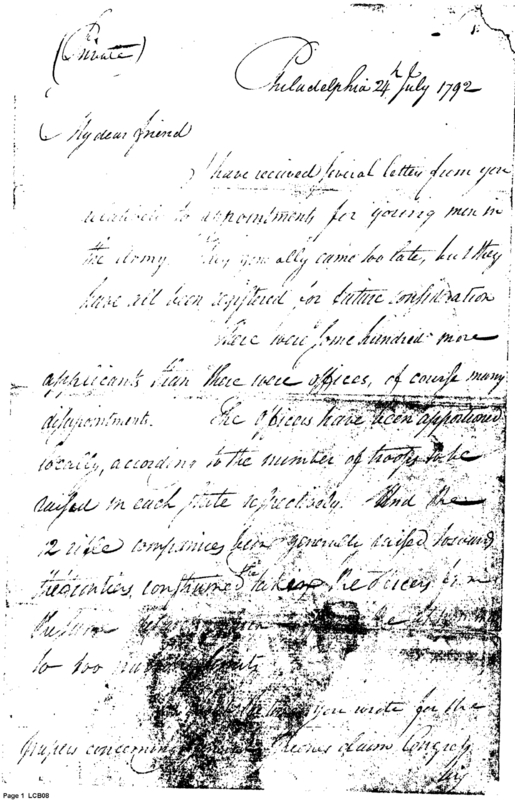 (Private)
Philadelphia 24th July 1792
My dear friend
I have received several letters from you
relative to appointments for young men in
the Army. They generally came too late, but they
have all been registered for future consideration
There were some hundred more
applicants than there were offices, of course many
disappointments. The officers have been apportioned
locally, according to the number of troops to be
raised in each state respectively. And the
12 rifle companies being generally raised toward
the frontiers, constrained the taking the officers from
the same
to too
you wrote for the
papers concerning claim Congress
Page 1 LCB08